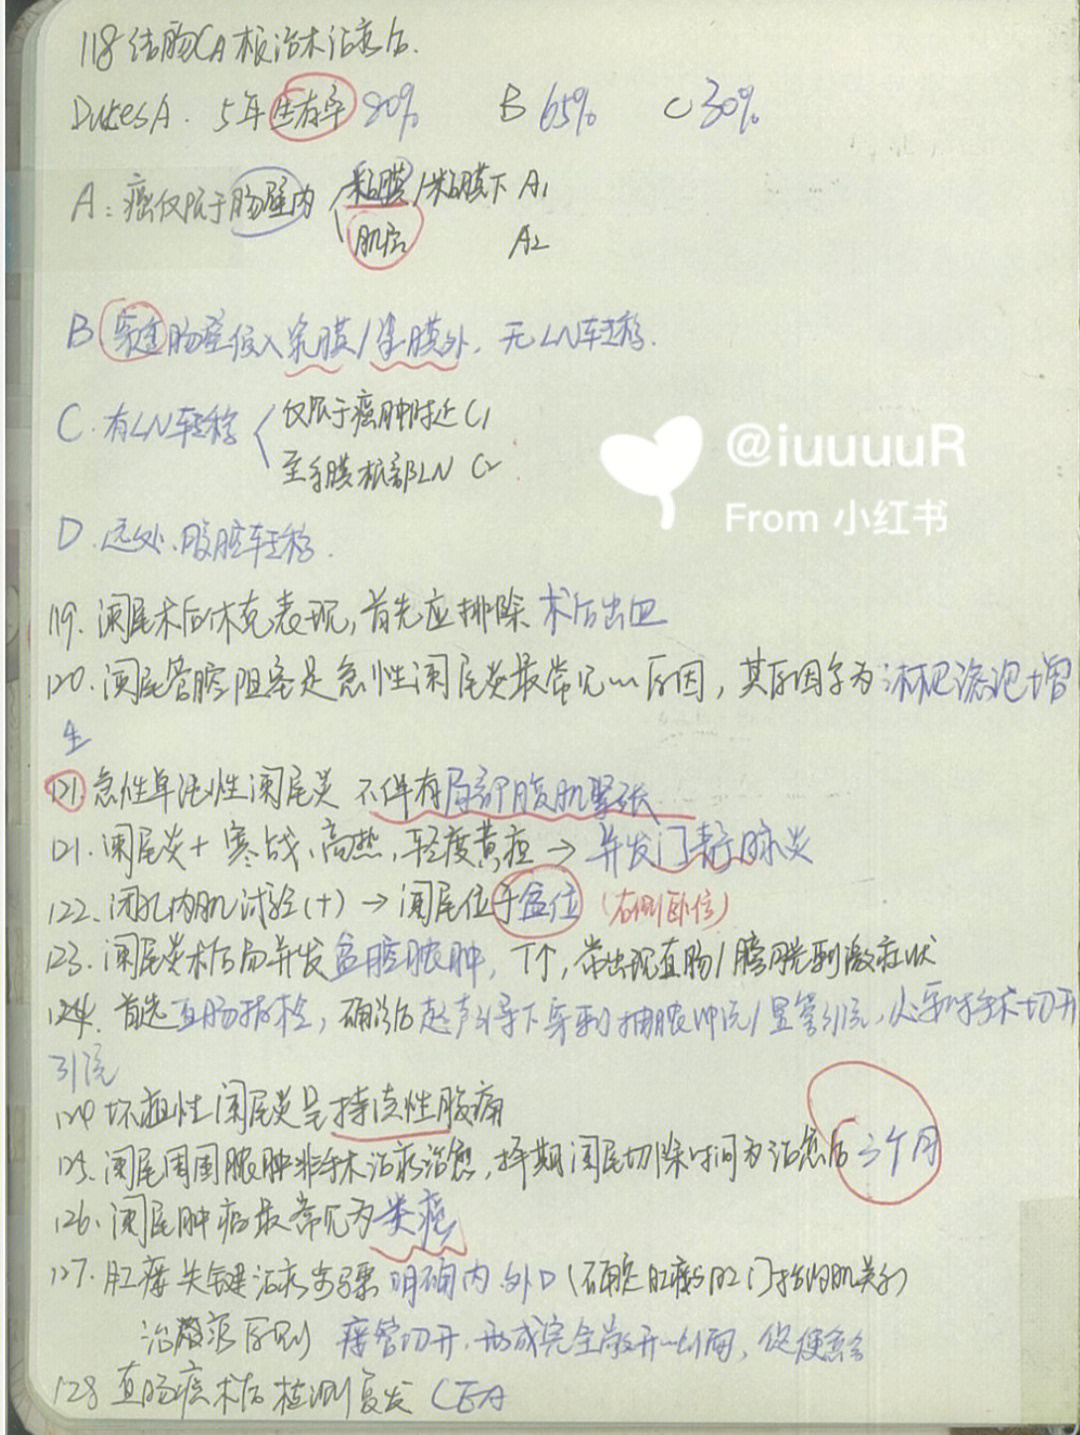 118 结肠CA根治术治疗后.
Dukes A. 5年生存率 80% B 65% C 30%
A：癌仅限于肠壁内 粘膜/粘膜下 A1
肌层 A2
B 穿透肠壁侵入浆膜/浆膜外，无LN转移.
C. 有LN转移 仅限于癌肿附近 C1
至系膜根部LN C2
@iuuuuR
From 小红书
D. 远处、腹腔转移.
119. 阑尾术后休克表现，首先应排除 术后出血
120. 阑尾管腔阻塞是急性阑尾炎最常见的原因，其原因多为淋巴滤泡增
生
121. 急性单纯性阑尾炎 不伴有局部腹肌紧张
121. 阑尾炎+寒战、高热，轻度黄疸 → 并发门静脉炎
122、闭孔内肌试验(+) → 阑尾位于盆位 (右侧卧位)
123. 阑尾炎术后易并发盆腔脓肿，T↑，常出现直肠/膀胱刺激症状
124. 首选直肠指检，确诊后超声引导下穿刺抽脓冲洗/置管引流，必要时手术切开
引流
124 坏疽性阑尾炎是持续性腹痛
125. 阑尾周围脓肿非手术治疗治愈，择期阑尾切除时间为治愈后三个月
126、阑尾肿瘤最常见为类癌
127. 肛瘘关键治疗步骤 明确内外口 (确定肛瘘与肛门括约肌关系)
治疗原则 瘘管切开，形成完全敞开的创面，促使愈合
128 直肠癌术后检测复发 CEA